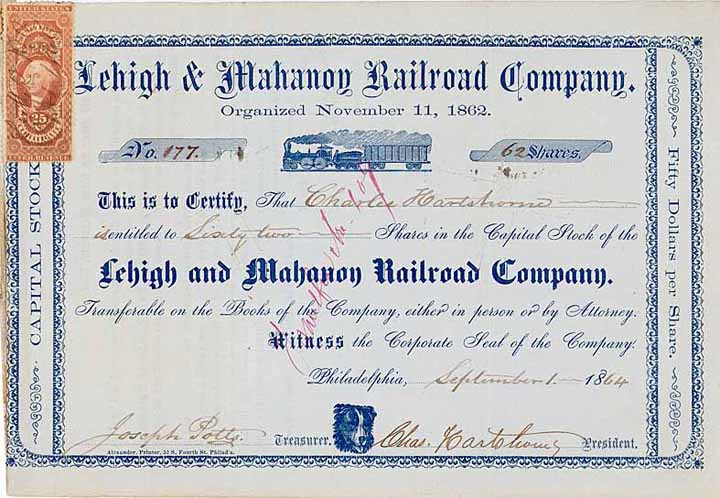 UNITED STATES
25
Lehigh & Mahanoy Railroad Company.
Organized November 11, 1862.
No. 177.
62 Shares.
This is to Certify, That Charles Hartshorne
is entitled to Sixty two Shares in the Capital Stock of the
Lehigh and Mahanoy Railroad Company.
Transferable on the Books of the Company, either in person or by Attorney.
Witness the Corporate Seal of the Company.
Philadelphia, September 1. 1864
Joseph Potts. Treasurer. Chas. Hartshorne President.
Alexander, Printer, 52 S. Fourth St. Philad'a.
CAPITAL STOCK
Fifty Dollars per Share.